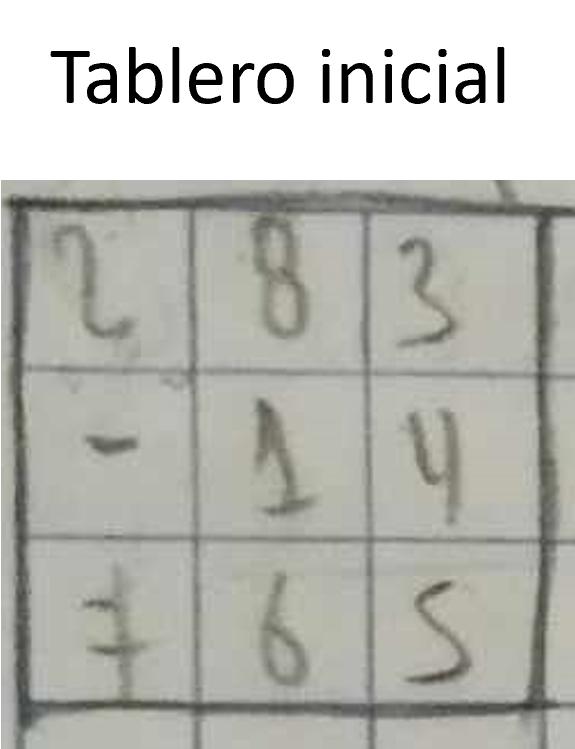 Tablero inicial
2 8 3
- 1 4
7 6 5